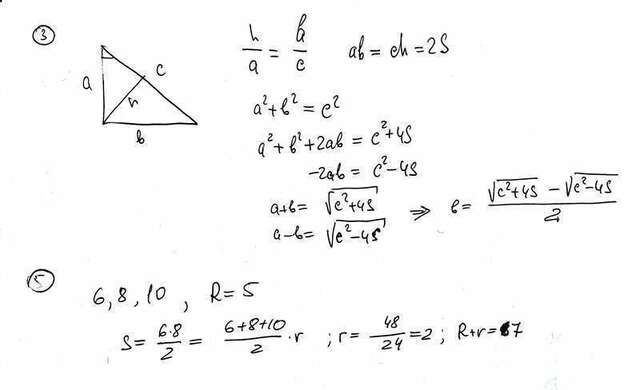 ③
a
c
h
b
h/a = b/c ab = ch = 2S
a²+b² = c²
a²+b²+2ab = c²+4S
-2ab = c²-4S
a+b = √(c²+4S)
a-b = √(c²-4S) ⇒ b = (√(c²+4S) - √(c²-4S))/2
⑤
6, 8, 10 , R = 5
S = 6·8/2 = (6+8+10)/2 · r ; r = 48/24 = 2 ; R+r = 7